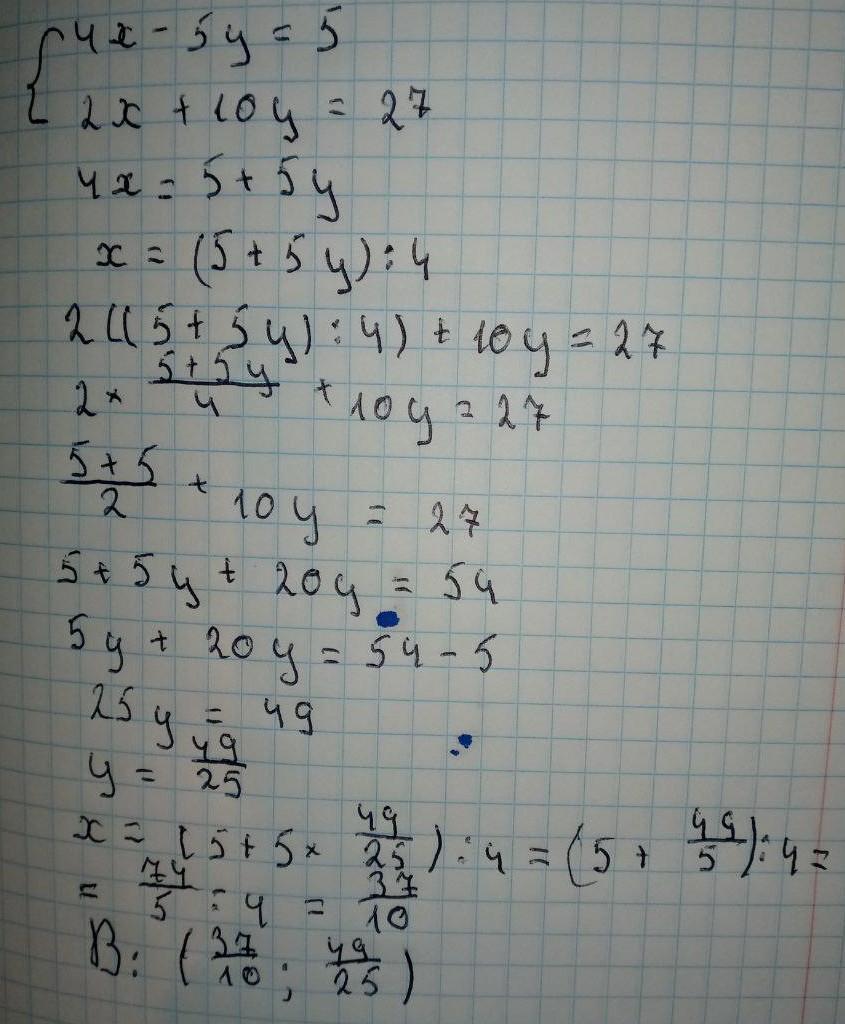 { 4x - 5y = 5
2x + 10y = 27
4x = 5 + 5y
x = (5 + 5y) : 4
2((5 + 5y) : 4) + 10y = 27
2 × (5+5y)/4 + 10y = 27
(5+5)/2 + 10y = 27
5 + 5y + 20y = 54
5y + 20y = 54 - 5
25y = 49
y = 49/25
x = (5 + 5 × 49/25) : 4 = (5 + 49/5) : 4 =
= 74/5 : 4 = 37/10
В: (37/10 ; 49/25)